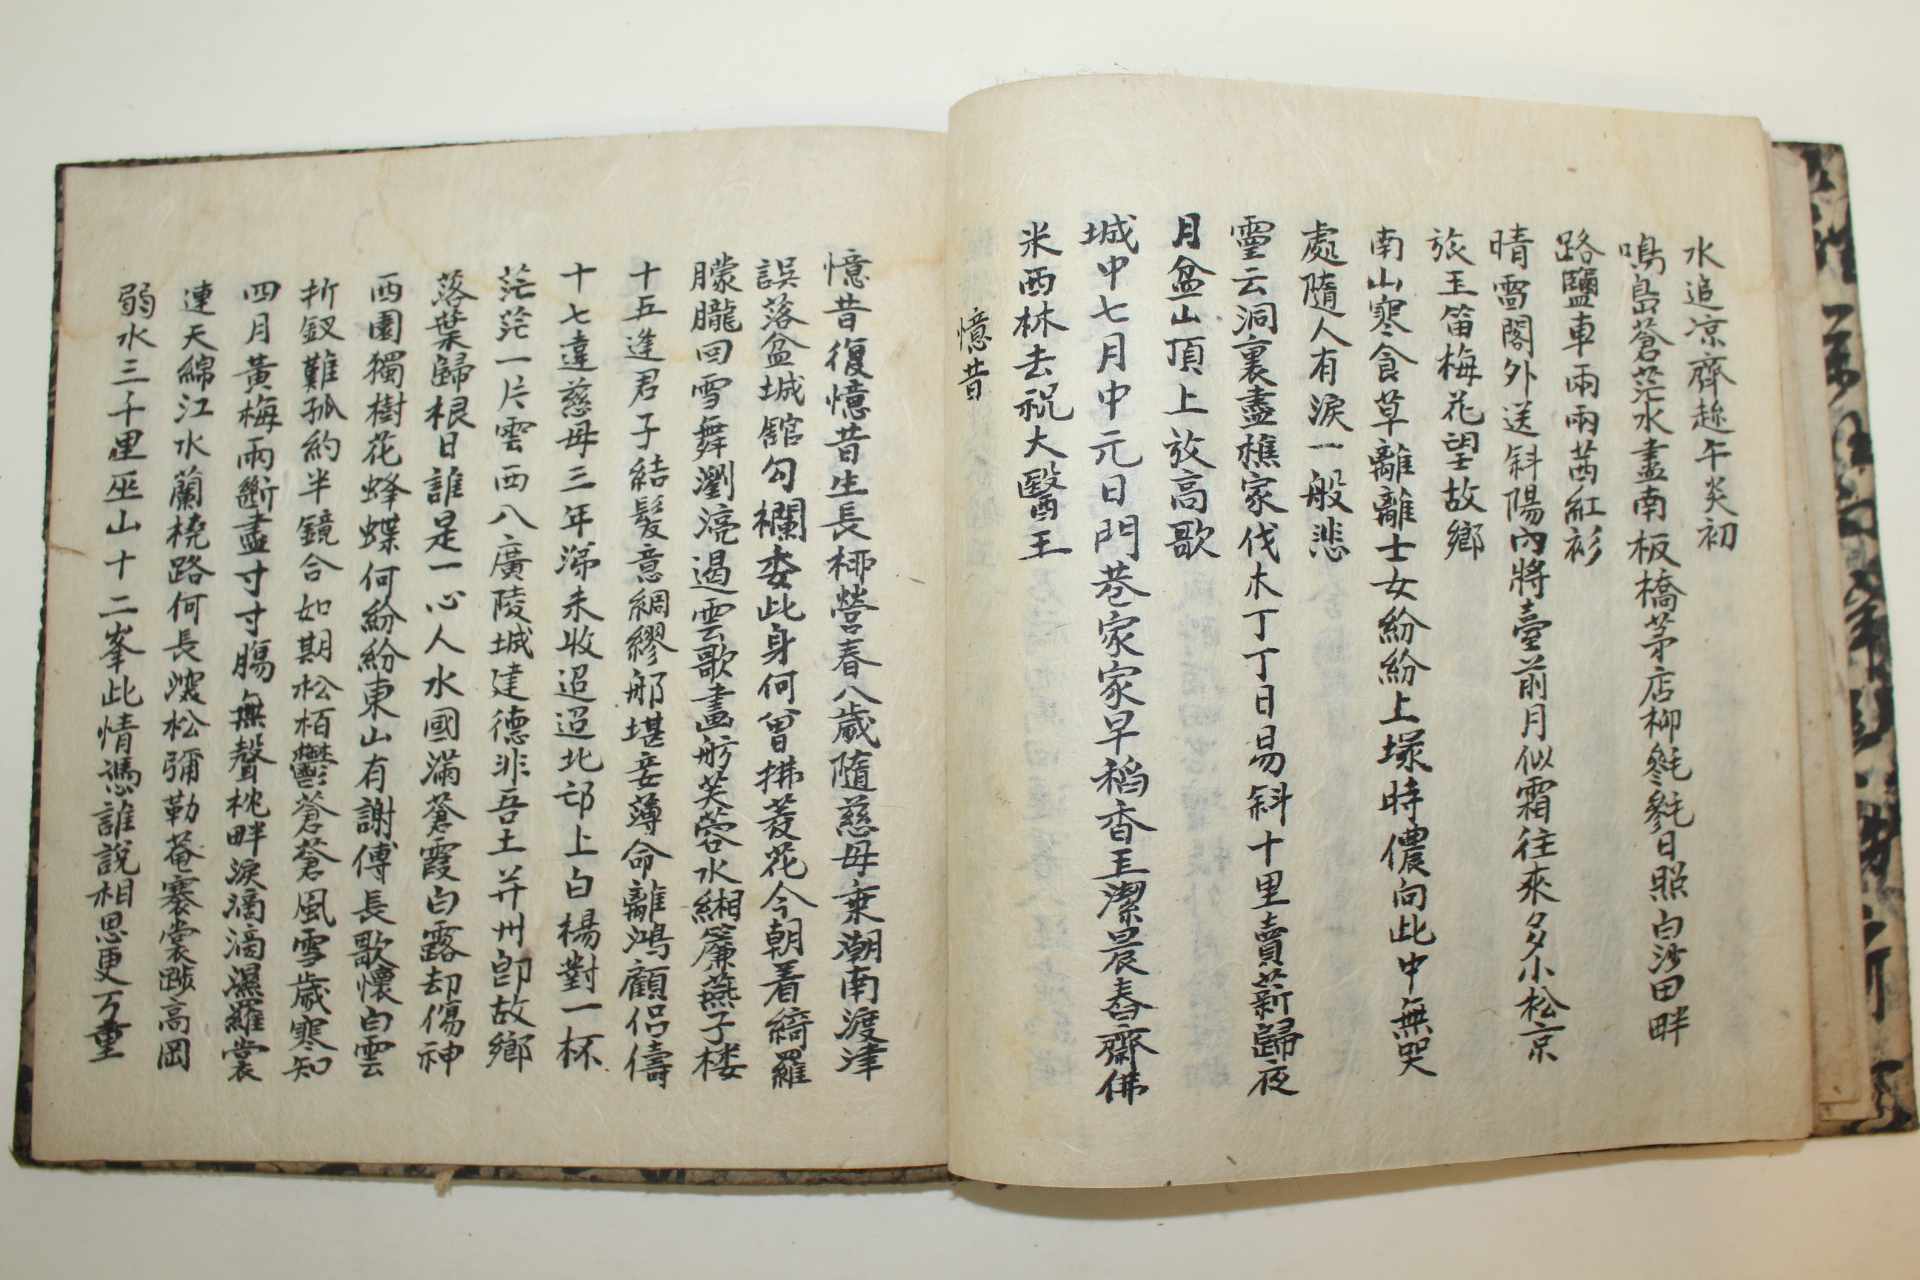 水追凉齊趂午炎初
鳴島蒼茫水盡南板橋茅店柳毿毿日照白沙田畔
路鹽車兩兩茜紅衫
晴雪閣外送斜陽內將臺前月似霜往來多少松京
旅玉笛梅花望故鄉
南山寒食草離離士女紛紛上塚時儂向此中無哭
處隨人有淚一般悲
靈云洞裏盡樵家伐木丁丁日易斜十里賣薪歸夜
月盆山頂上放高歌
城中七月中元日門巷家家早稻香玉潔晨舂齋佛
米西林去祝大醫王
憶昔
憶昔復憶昔生長柳營春八歲隨慈母乘潮南渡津
誤落盆城舘勾欄委此身何曾拂菱花今朝着綺羅
朦朧回雪舞瀏湸遏雲歌畵舫芙蓉水緗簾燕子楼
十五逢君子結髮意綢繆那堪妾薄命離鴻顧侶儔
十七違慈母三年涕未收迢迢北邙上白楊對一杯
茫茫一片雲西八廣陵城建德非吾土并州卽故鄉
落葉歸根日誰是一心人水國滿蒼霞白露却傷神
西園獨樹花蜂蝶何紛紛東山有謝傅長歌懷白雲
折釵難孤約半鏡合如期松栢鬱蒼蒼風雪歲寒知
四月黃梅雨斷盡寸寸膓無聲枕畔淚滴滴濕羅裳
連天綿江水蘭橈路何長澬松彌勒菴褰裳陟高岡
弱水三千里巫山十二峯此情馮誰說相思更万重